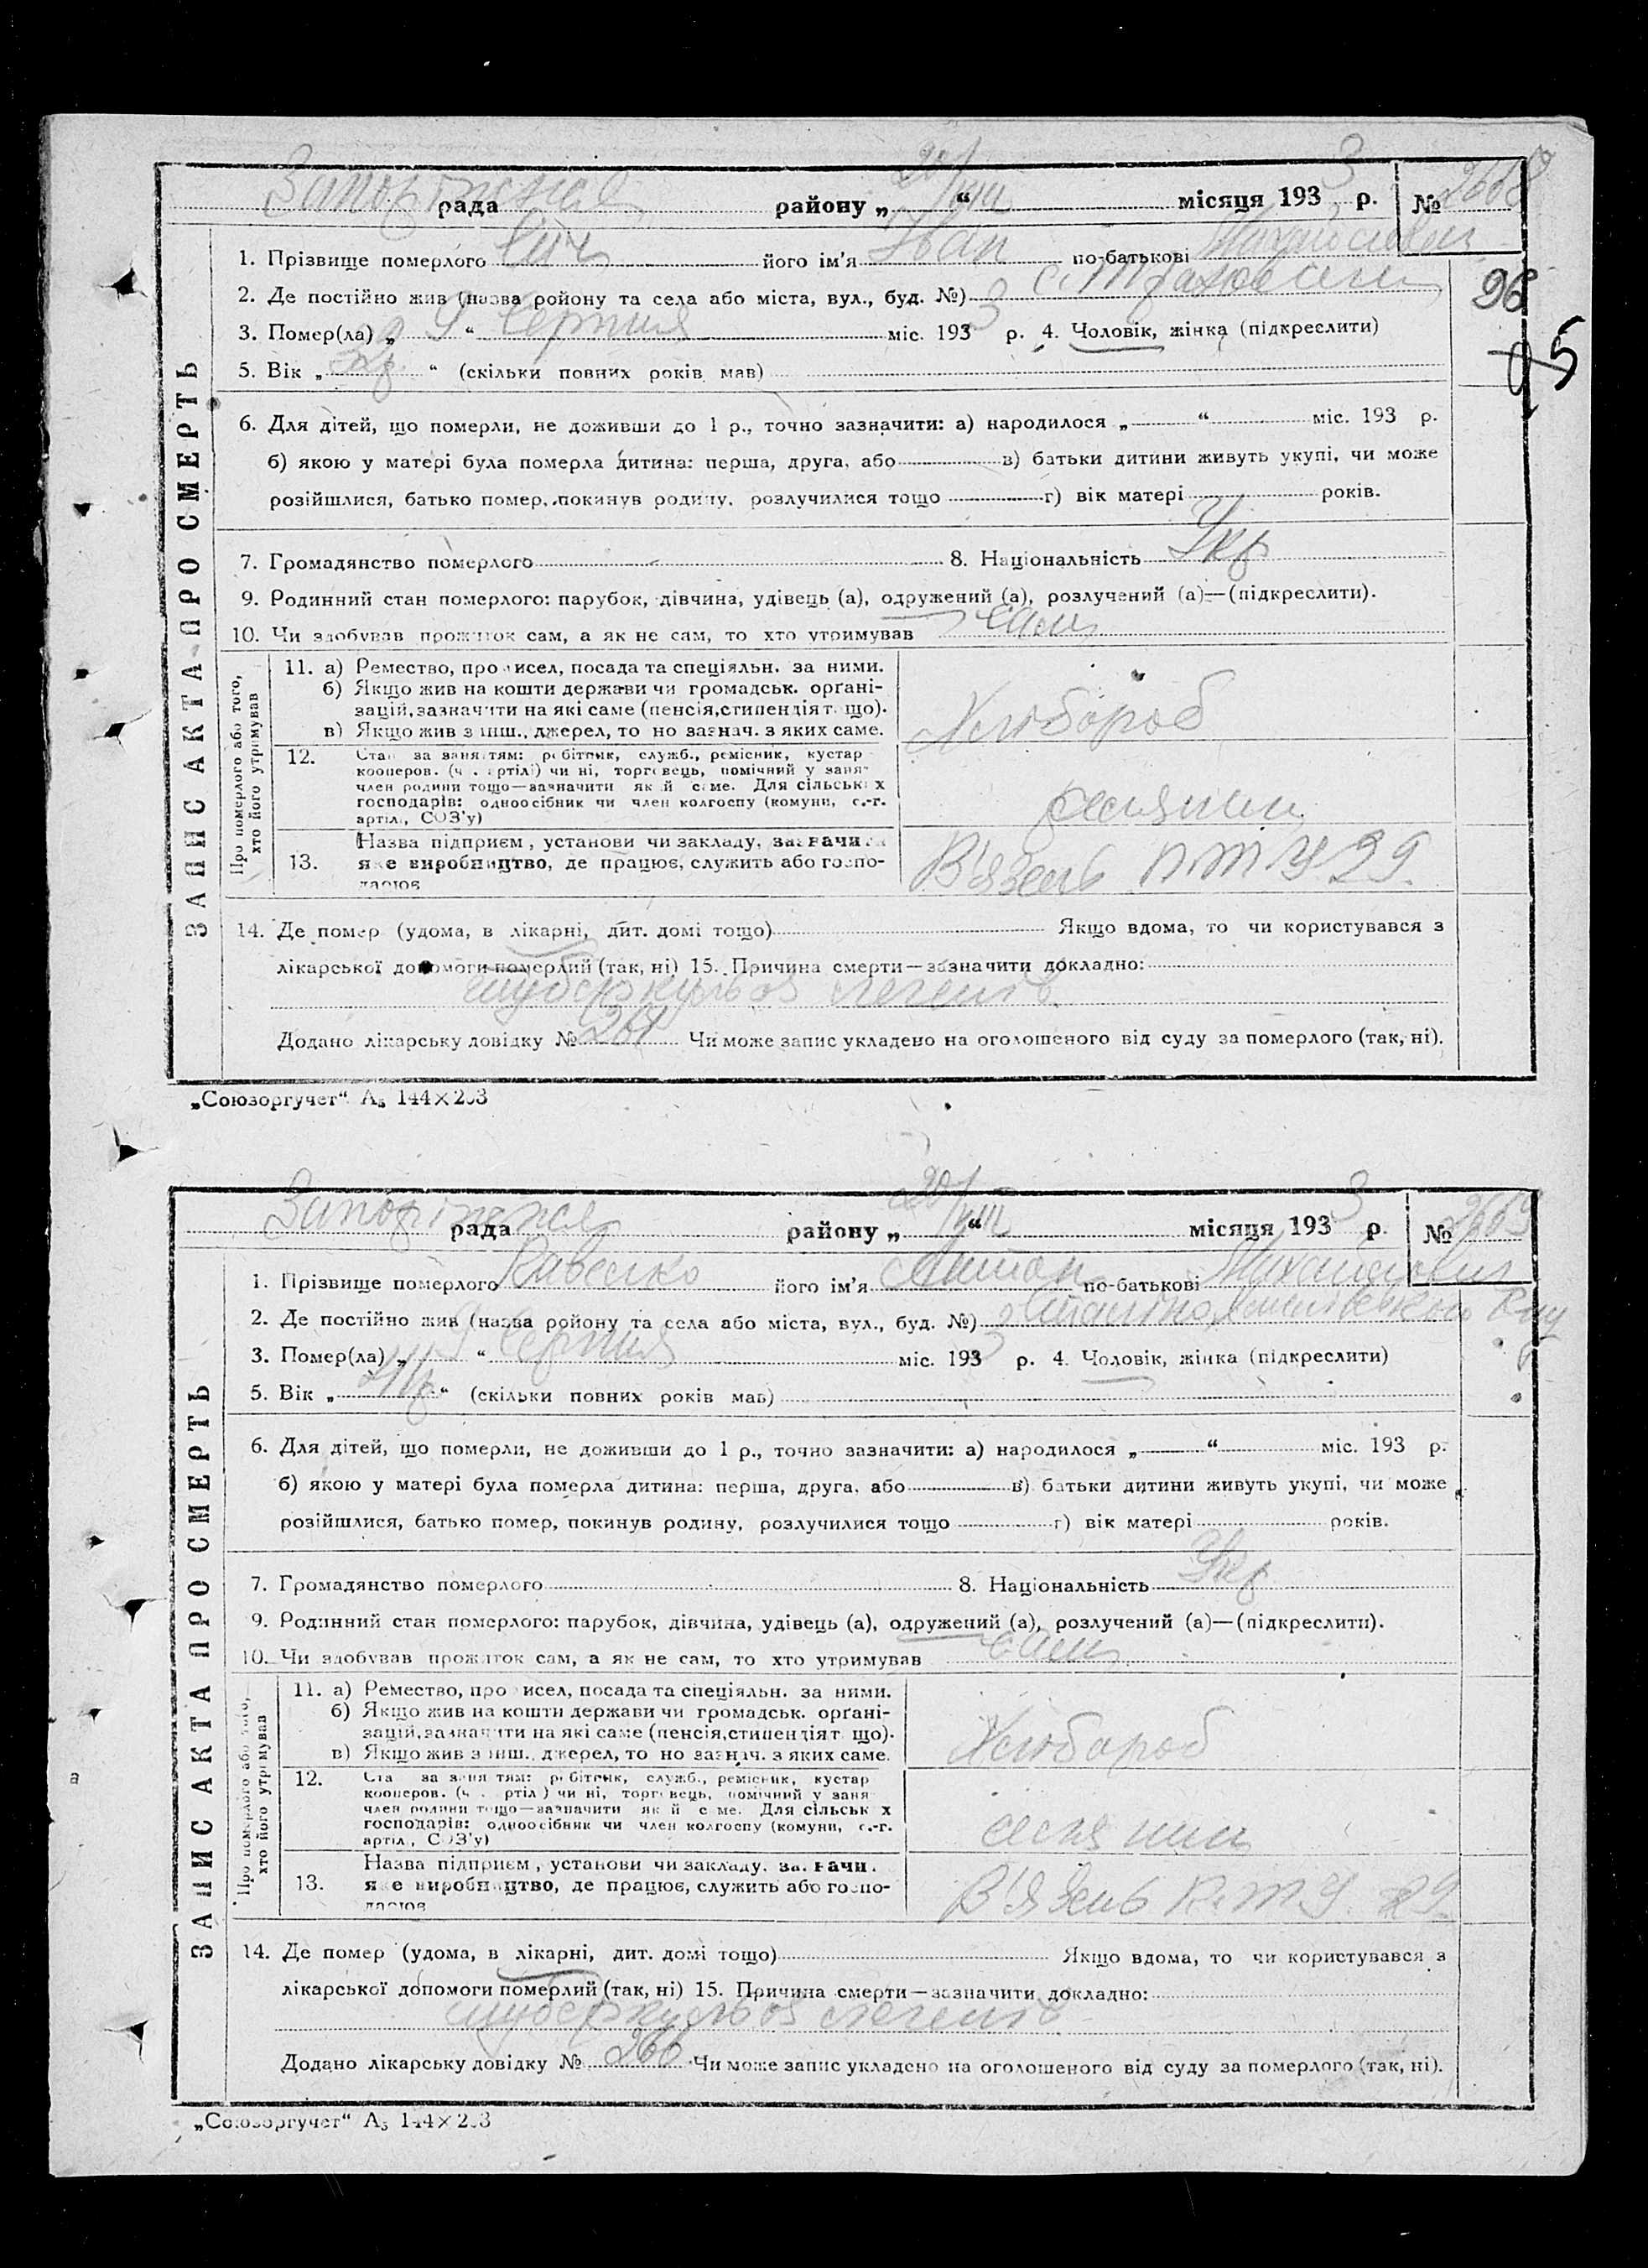 Запоріжська рада району „20/VIII“ місяця 1933 р. № 2668
1. Прізвище померлого його ім'я Іван по-батькові
2. Де постійно жив (назва ройону та села або міста, вул., буд. №) с.
96
3. Помер(ла) „9“ Серпня міс. 1933 р. 4. Чоловік, жінка (підкреслити)
95
5. Вік „ “ (скільки повних років мав)
ЗАПИС АКТА ПРО СМЕРТЬ
6. Для дітей, що померли, не доживши до 1 р., точно зазначити: а) народилося „ “ міс. 193 р.
б) якою у матері була померла дитина: перша, друга, або в) батьки дитини живуть укупі, чи може
розійшлися, батько помер, покинув родину, розлучилися тощо г) вік матері років.
7. Громадянство померлого 8. Національність Укр
9. Родинний стан померлого: парубок, дівчина, удівець (а), одружений (а), розлучений (а)—(підкреслити).
10. Чи здобував прожиток сам, а як не сам, то хто утримував сам
Про померлого або того, хто його утримував
11. а) Ремество, промисел, посада та спеціяльн. за ними.
б) Якщо жив на кошти держави чи громадськ. орґані-
зацій, зазначити на які саме (пенсія, стипендія т. що).
в) Якщо жив з інш., джерел, то но зазнач. з яких саме.
Хлібороб
12. Стан за заняттям: робітник, служб., ремісник, кустар
кооперов. (ч. артілі) чи ні, торговець, помічний у заня-
член родини тощо—зазначити який саме. Для сільських
господарів: одноосібник чи член колгоспу (комуни, с.-г.
артілі, СОЗ'у)
селянин
13. Назва підприєм, установи чи закладу, зазначи
яке виробництво, де працює, служить або госпо-
дарює
В'язень П.Т.У. 29.
14. Де помер (удома, в лікарні, дит. домі тощо) Якщо вдома, то чи користувався з
лікарської допомоги померлий (так, ні) 15. Причина смерти—зазначити докладно:
туберкульоз легенів
Додано лікарську довідку № 264 Чи може запис укладено на оголошеного від суду за померлого (так, ні).
„Союзоргучет“ А₅ 144×203
Запоріжська рада району „20/VIII“ місяця 1933 р. № 2669
1. Прізвище померлого його ім'я Антон по-батькові Михайлович
2. Де постійно жив (назва ройону та села або міста, вул., буд. №)
3. Помер(ла) „9“ Серпня міс. 1933 р. 4. Чоловік, жінка (підкреслити)
5. Вік „ “ (скільки повних років мав)
ЗАПИС АКТА ПРО СМЕРТЬ
6. Для дітей, що померли, не доживши до 1 р., точно зазначити: а) народилося „ “ міс. 193 р.
б) якою у матері була померла дитина: перша, друга, або в) батьки дитини живуть укупі, чи може
розійшлися, батько помер, покинув родину, розлучилися тощо г) вік матері років.
7. Громадянство померлого 8. Національність Укр
9. Родинний стан померлого: парубок, дівчина, удівець (а), одружений (а), розлучений (а)—(підкреслити).
10. Чи здобував прожиток сам, а як не сам, то хто утримував сам
Про померлого або того, хто його утримував
11. а) Ремество, промисел, посада та спеціяльн. за ними.
б) Якщо жив на кошти держави чи громадськ. орґані-
зацій, зазначити на які саме (пенсія, стипендія т. що).
в) Якщо жив з інш., джерел, то но зазнач. з яких саме.
Хлібороб
12. Стан за заняттям: робітник, служб., ремісник, кустар
кооперов. (ч. артілі) чи ні, торговець, помічний у заня-
член родини тощо—зазначити який саме. Для сільських
господарів: одноосібник чи член колгоспу (комуни, с.-г.
артілі, СОЗ'у)
селянин
13. Назва підприєм, установи чи закладу, зазначи
яке виробництво, де працює, служить або госпо-
дарює
В'язень П.Т.У. 29.
14. Де помер (удома, в лікарні, дит. домі тощо) Якщо вдома, то чи користувався з
лікарської допомоги померлий (так, ні) 15. Причина смерти—зазначити докладно:
туберкульоз легенів
Додано лікарську довідку № 266 Чи може запис укладено на оголошеного від суду за померлого (так, ні).
„Союзоргучет“ А₅ 144×203